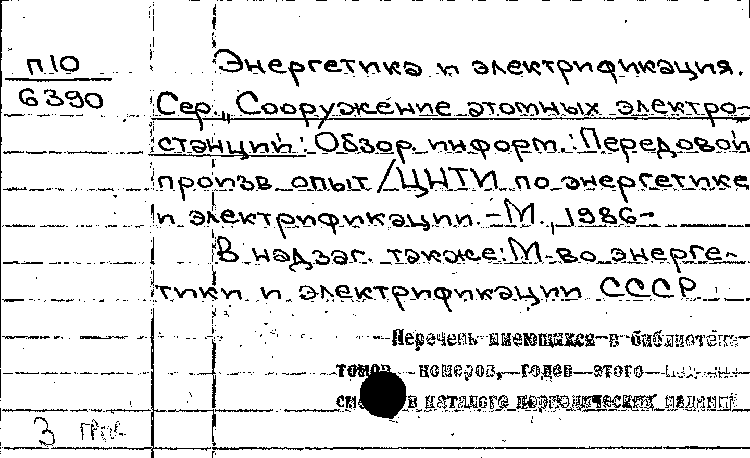 П10
6390
Энергетика и электрификация.
Сер. „Сооружение атомных электро-
станций: Обзор. информ.: Передовой
произв. опыт /ЦНТИ по энергетике
и электрификации. -М., 1986-
В надзаг. также: М-во энерге-
тики и электрификации СССР
Перечень имеющихся в библиотеке
томов, номеров, годов этого
в каталоге периодических изданий
3